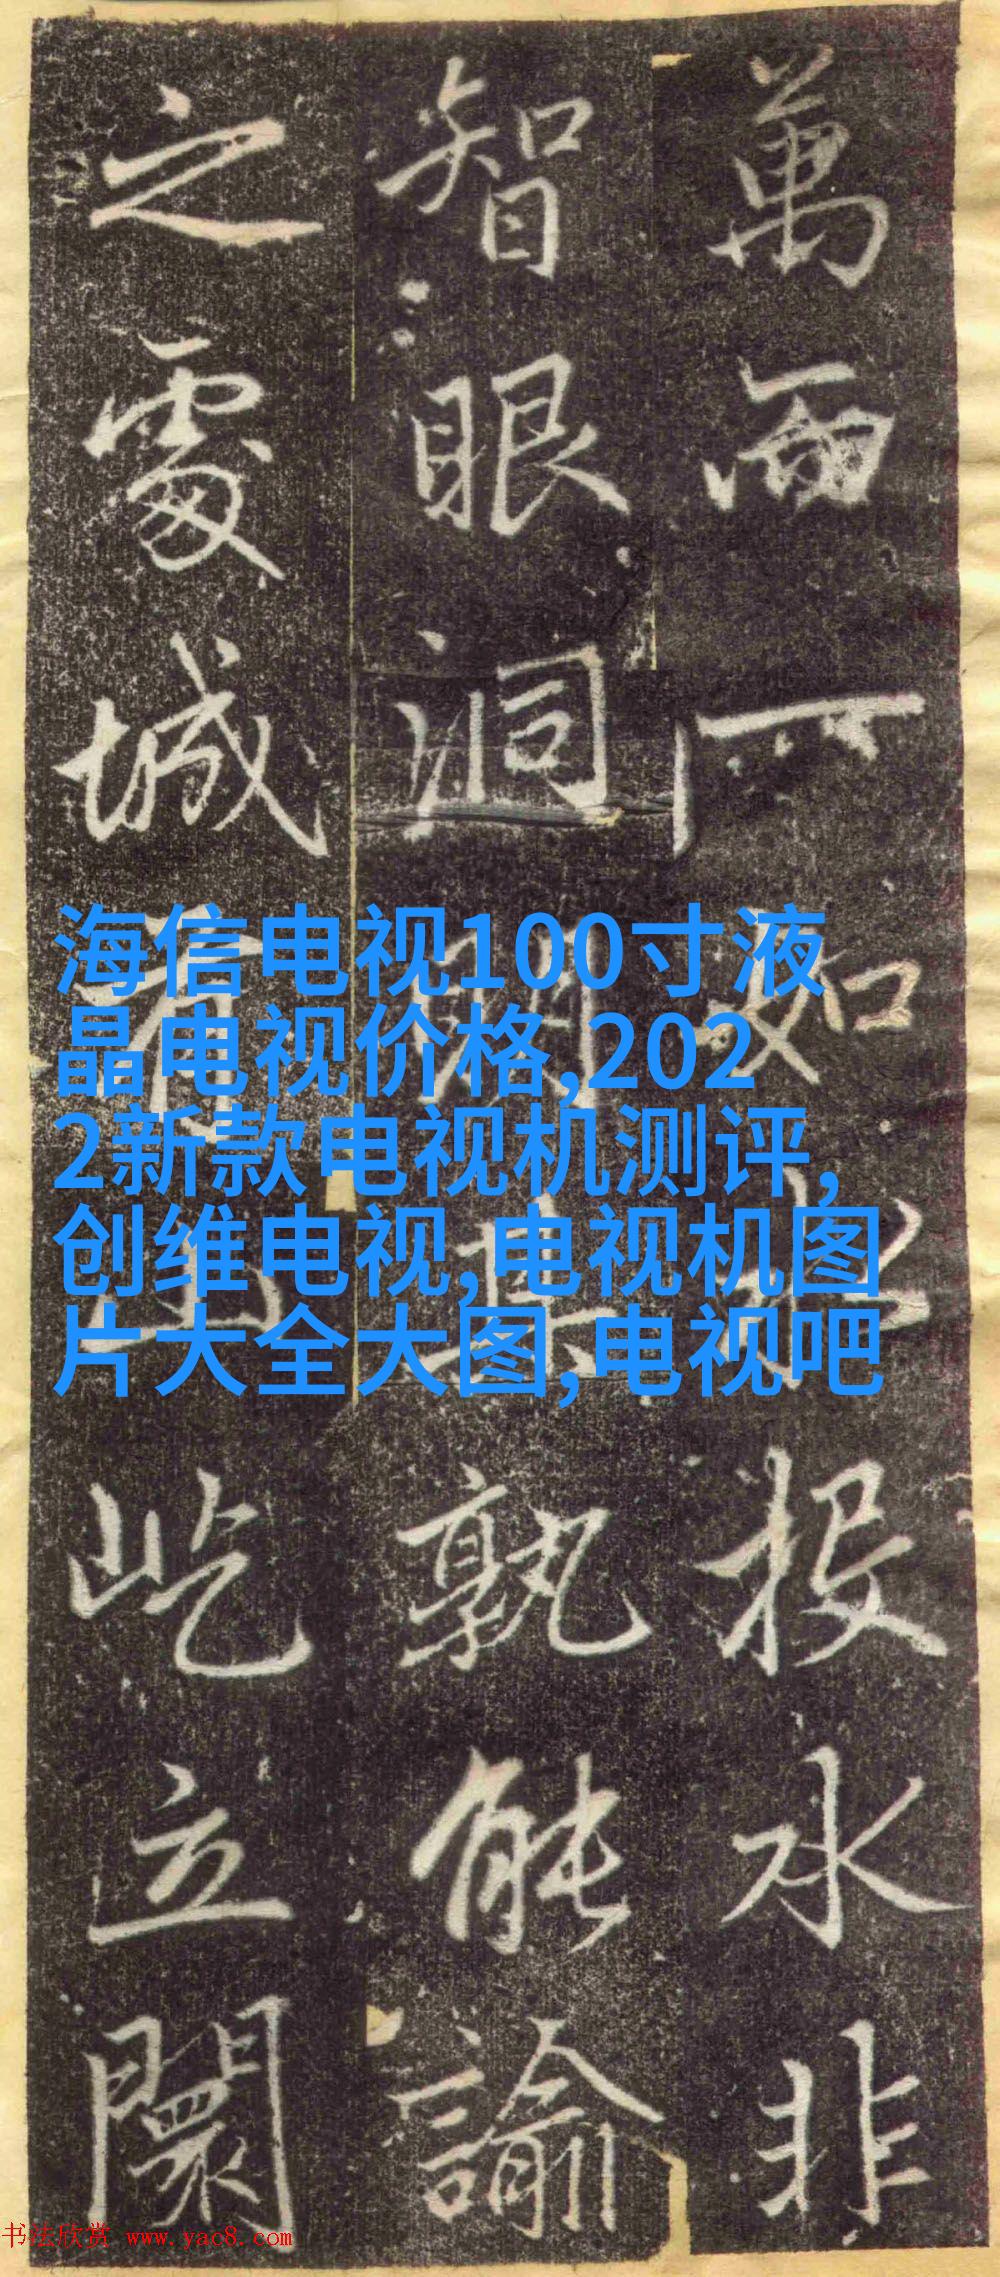 萬一如水投水非
智眼洞明其孰能諭
之處城有山屹立闤
海信电视100寸液
晶电视价格,202
2新款电视机测评,
创维电视,电视机图
片大全大图,电视吧
书法欣赏 www.yac8.com